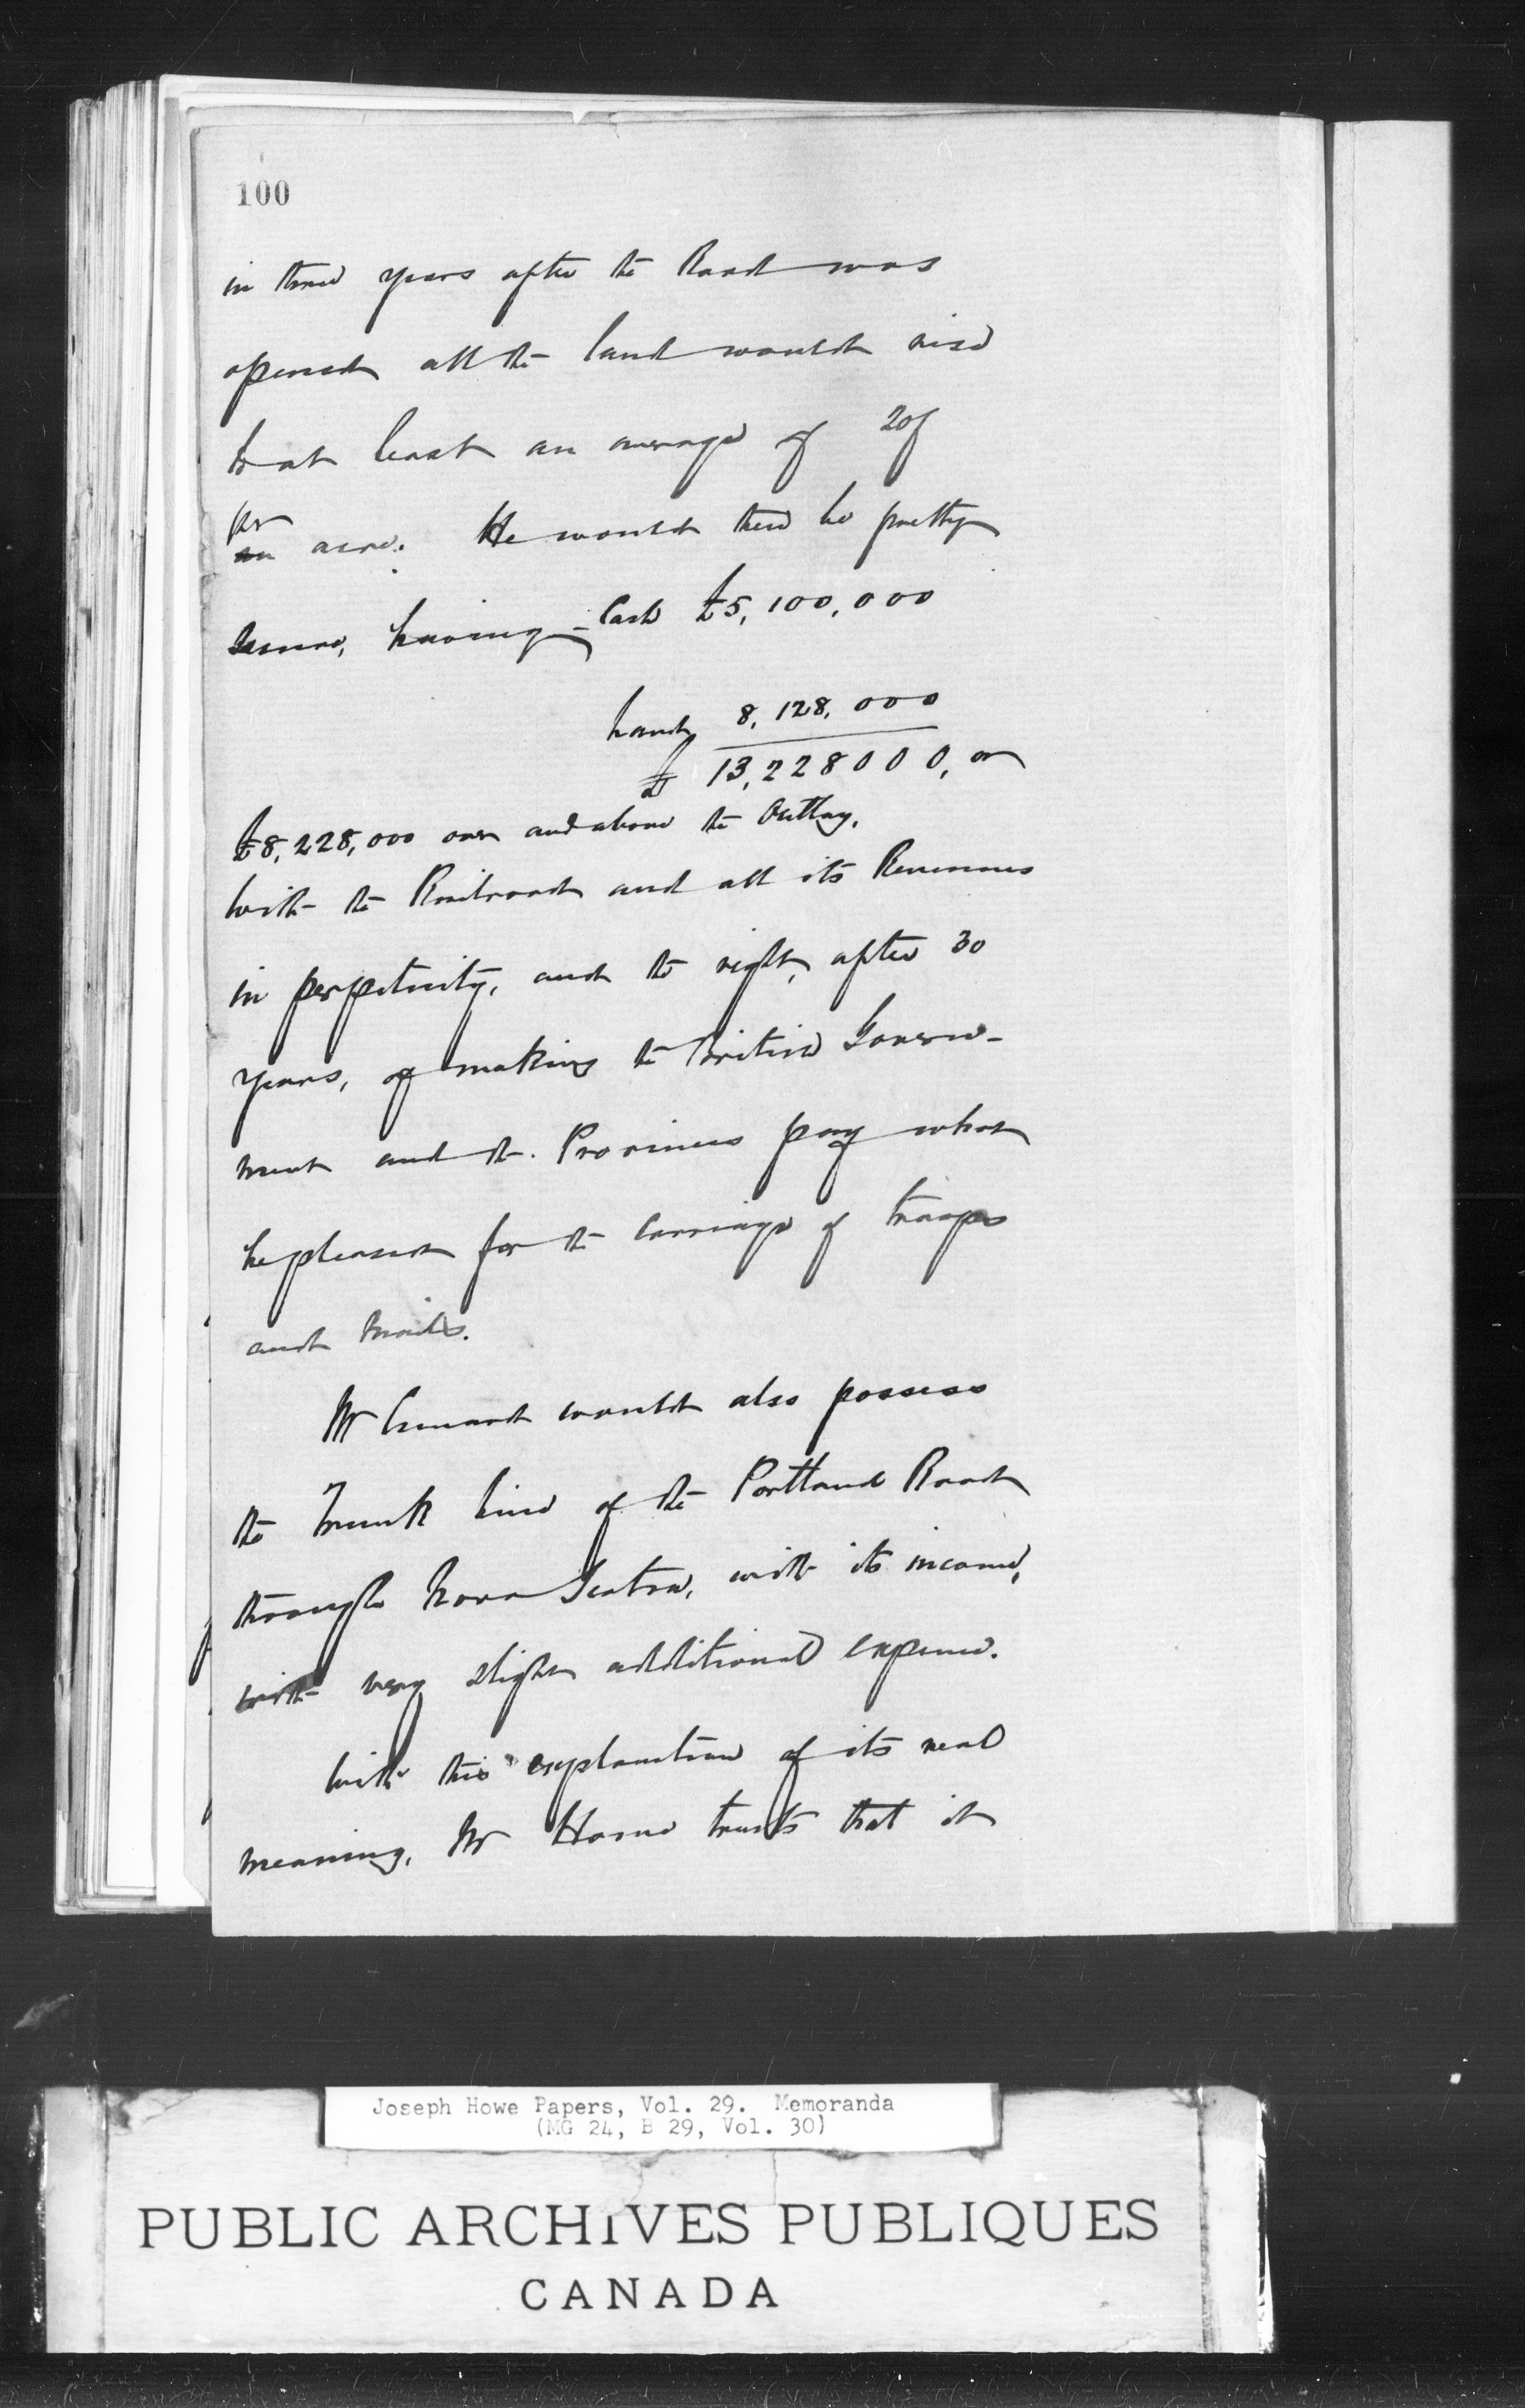 100
in three years after the Road was
opened all the land would rise
to at least an average of 20/
per
an acre. He would then be pretty
secure, having – Cash £5,100,000
Land 8,128,000
£ 13,228000, or
£8,228,000 over and above the Outlay,
with the Railroad and all its Revenues
in perpetuity, and the right, after 30
years, of making the British Govern-
ment and the Provinces pay what
he pleased for the carriage of troops
and Mails.
Mr Cunard would also possess
the Trunk line of the Portland Road
through Nova Scotia, with its income,
with very slight additional expense.
With this explanation of its real
meaning, Mr Howe trusts that it
Joseph Howe Papers, Vol. 29. Memoranda
(MG 24, B 29, Vol. 30)
PUBLIC ARCHIVES PUBLIQUES
CANADA